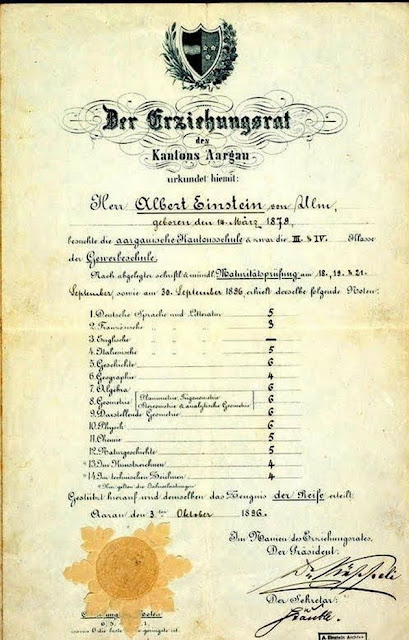 Der Erziehungsrat
des
Kantons Aargau
urkundet hiemit:
Herr Albert Einstein von Ulm,
geboren den 14. März 1879,
besuchte die aargauische Kantonsschule & zwar die III. & IV. Klasse
der Gewerbeschule.
Nach abgelegter schriftl. & mündl. Maturitätsprüfung am 18., 19. & 21.
September, sowie am 30. September 1896, erhielt derselbe folgende Noten:
1. Deutsche Sprache und Litteratur 5
2. Französische " " " 3
3. Englische " " " —
4. Italienische " " " 5
5. Geschichte 6
6. Geographie 4
7. Algebra 6
8. Geometrie Planimetrie, Trigonometrie Stereometrie & analytische Geometrie 6
9. Darstellende Geometrie 6
10. Physik 6
11. Chemie 5
12. Naturgeschichte 5
*13. Im Kunstzeichnen 4
*14. Im technischen Zeichnen 4
* Hier gelten die Jahresleistungen.
Gestützt hierauf wird demselben das Zeugnis der Reife erteilt.
Aarau den 3ten Oktober 1896.
Im Namen des Erziehungsrates,
Der Präsident:
Der Sekretär:
Noten
6, 5,
wovon 6 die beste geringste ist.
A. Einstein Archive